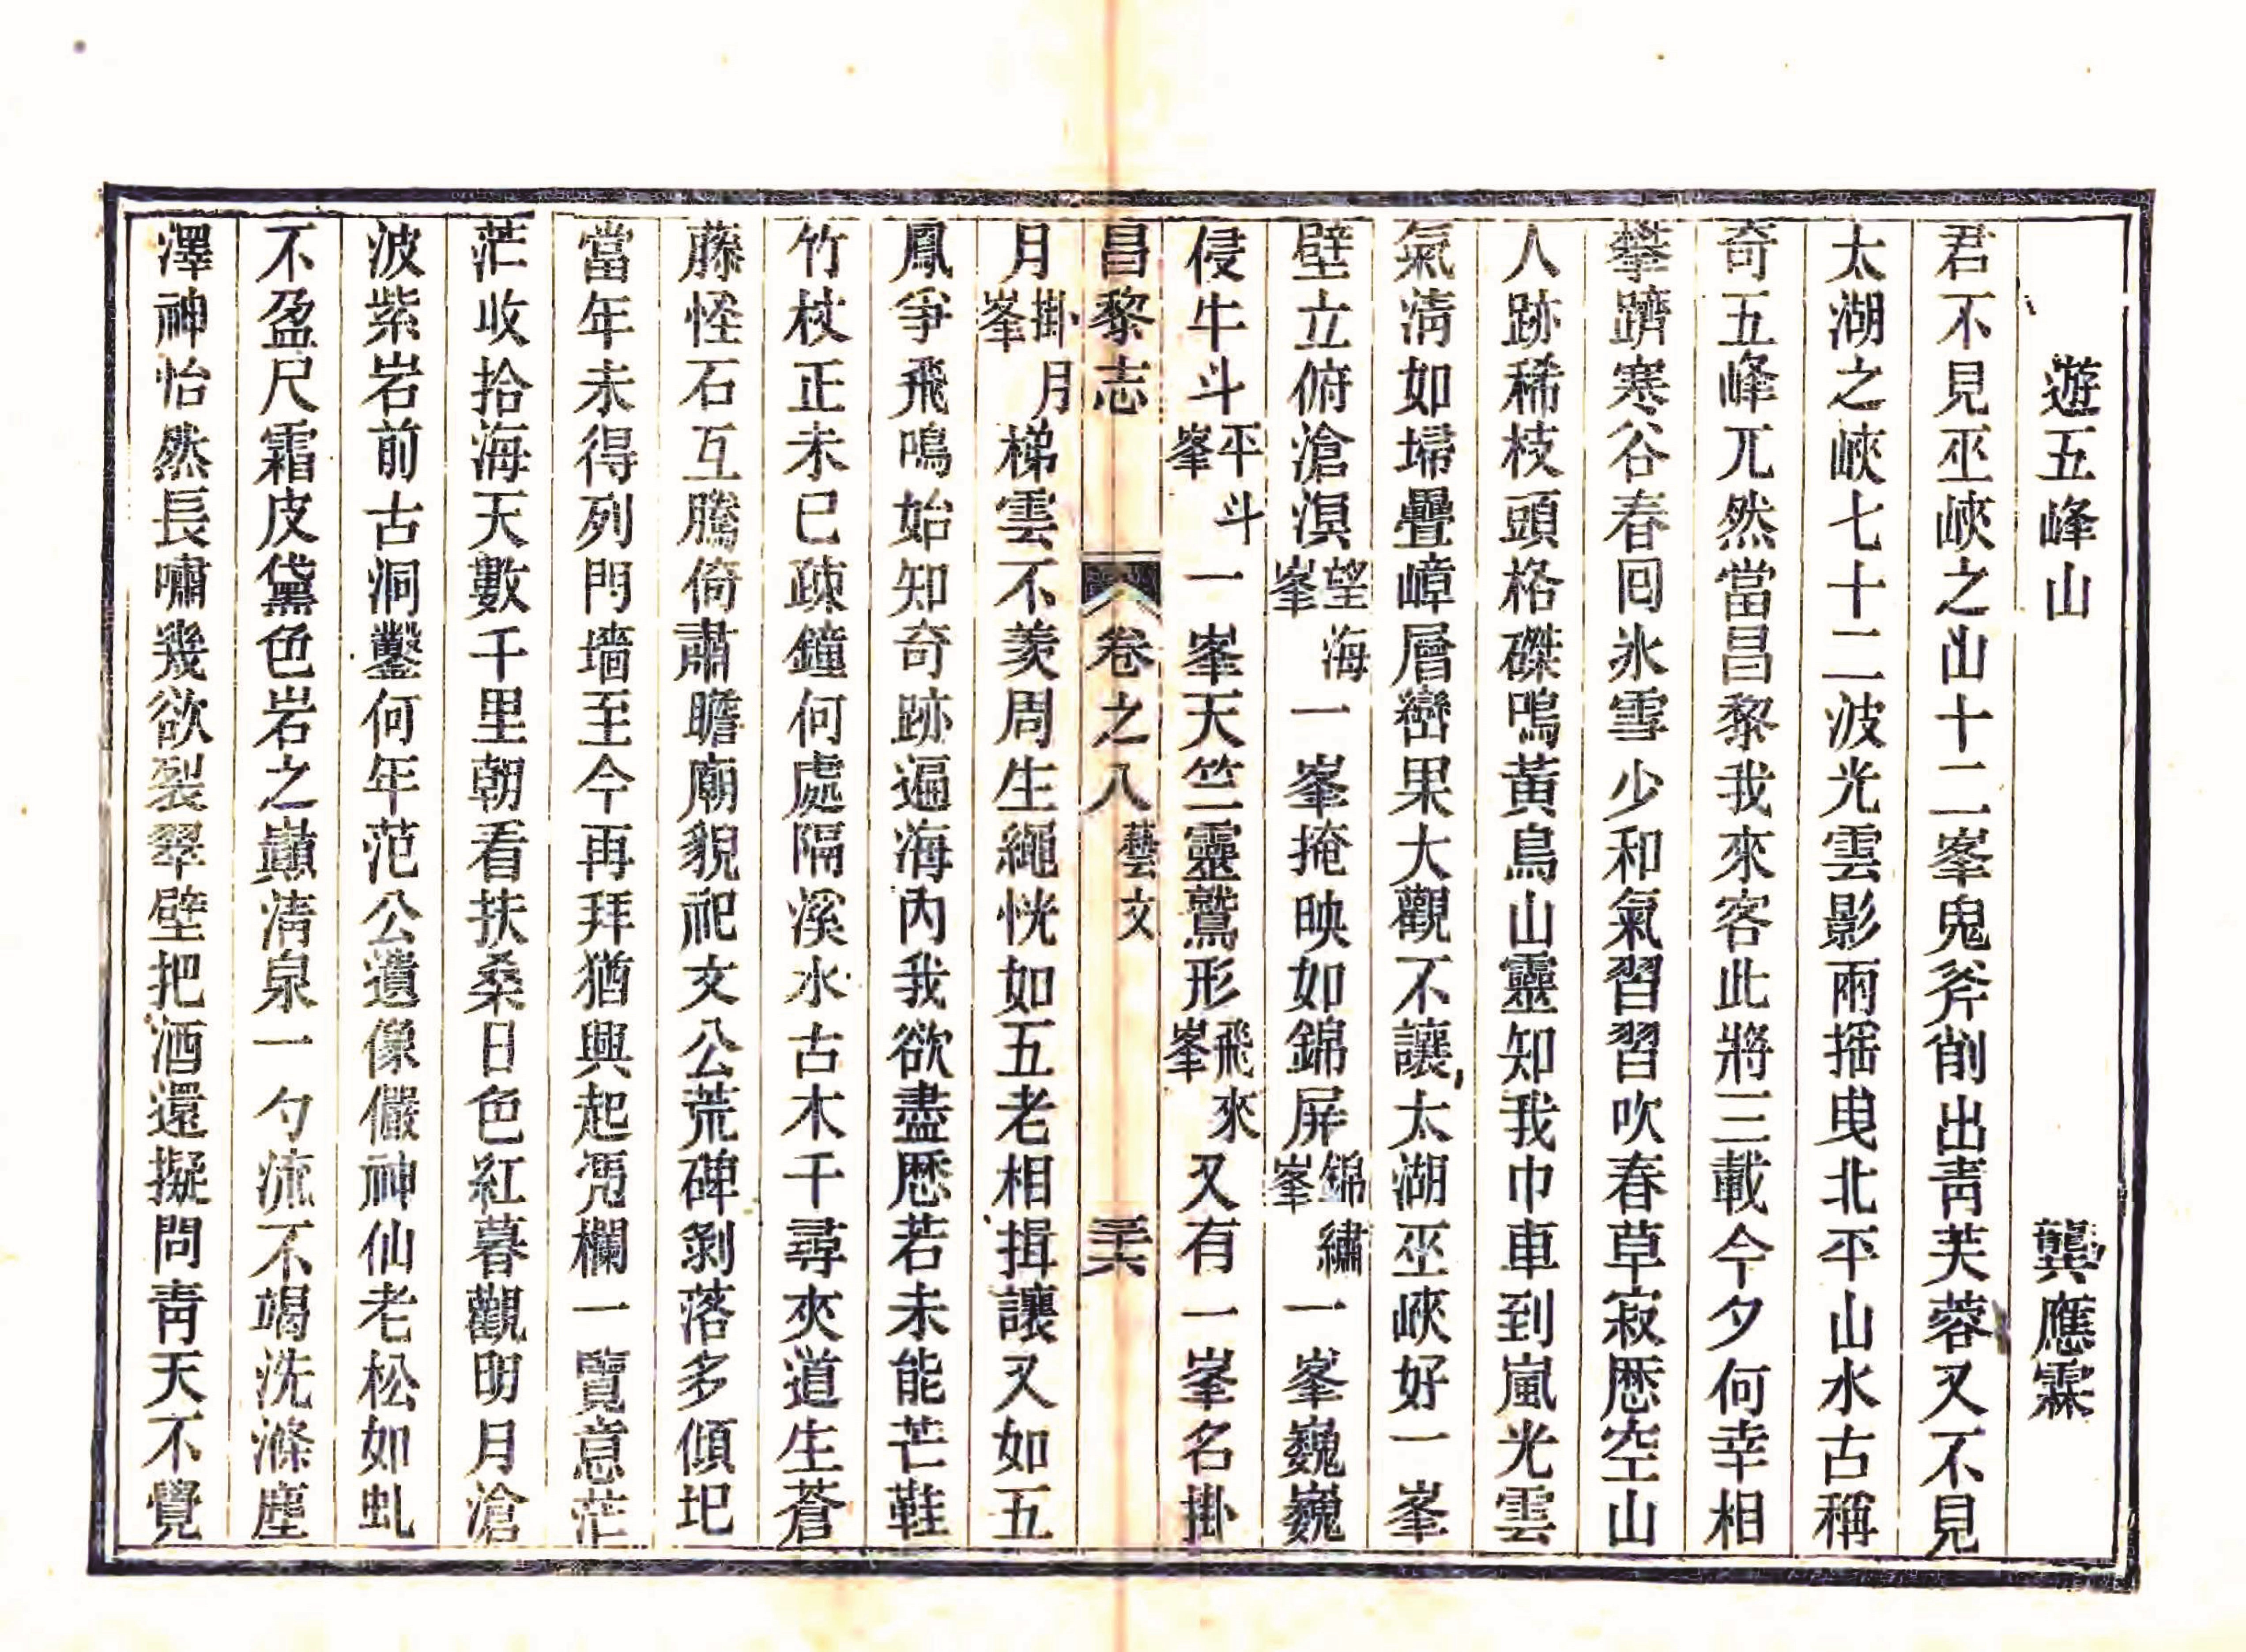 遊五峰山 龔應霖
君不見巫峽之山十二峯鬼斧削出靑芙蓉又不見
太湖之峽七十二波光雲影兩揺曳北平山水古稱
奇五峰兀然當昌黎我來客此將三載今夕何幸相
攀躋寒谷春囘氷雪少和氣習習吹春草寂歷空山
人跡稀枝頭格磔鳴黃鳥山靈知我巾車到嵐光雲
氣淸如埽疊嶂層巒果大觀不讓太湖巫峽好一峯
壁立俯滄溟望海峯一峯掩映如錦屏錦繡峯一峯巍巍
侵牛斗平斗峯一峯天竺靈鷲形飛來峯又有一峯名掛
月掛月峯梯雲不羨周生繩恍如五老相揖讓又如五
鳳爭飛鳴始知奇跡遍海內我欲盡歷若未能芒鞋
竹杖正未已疎鐘何處隔溪水古木千尋夾道生蒼
藤怪石互騰倚肅瞻廟貌祀文公荒碑剝落多傾圯
當年未得列門墻至今再拜猶興起凴欄一覽意茫
茫收拾海天數千里朝看扶桑日色紅暮觀明月滄
波紫岩前古洞鑿何年范公遺像儼神仙老松如虬
不盈尺霜皮黛色岩之巔淸泉一勺流不竭洗滌塵
澤神怡然長嘯幾欲裂翠壁把酒還擬問靑天不覺
昌黎志 卷之八 藝文 三十六